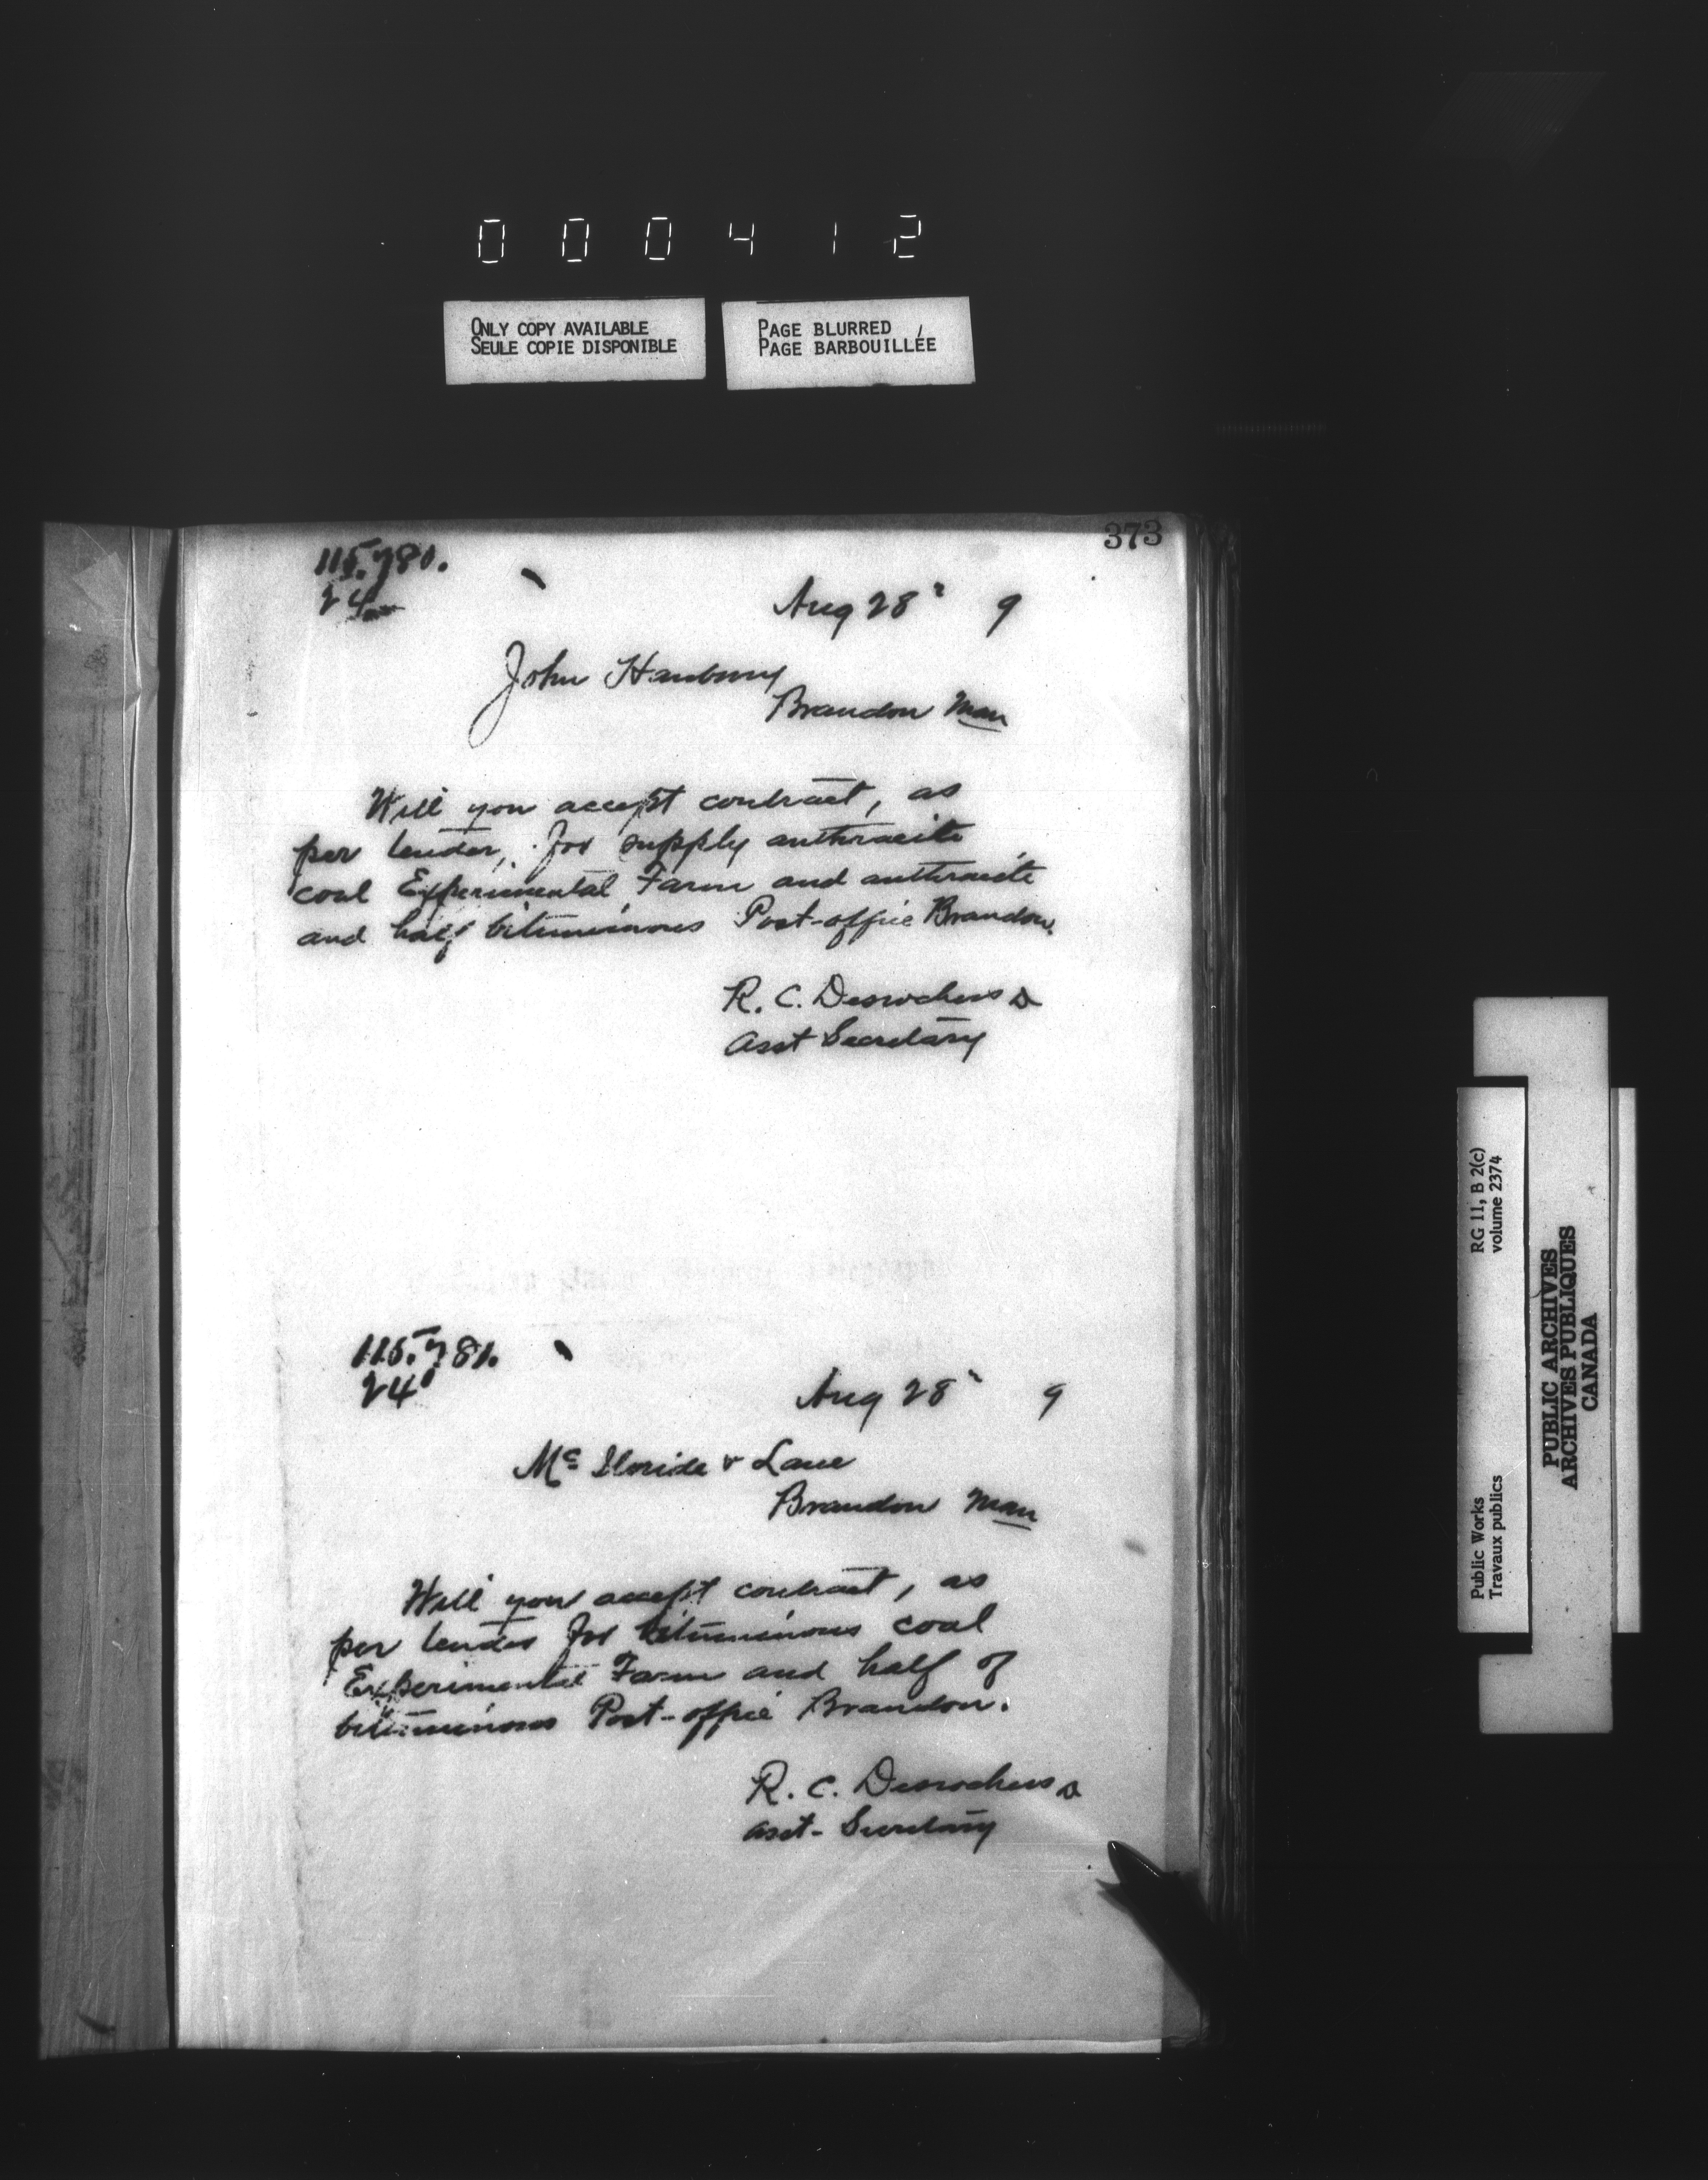 000412
ONLY COPY AVAILABLE
SEULE COPIE DISPONIBLE
PAGE BLURRED
PAGE BARBOUILLÉE
373
115.781.
24
Aug 28" 9
John Hanbury
Brandon Man
Will you accept contract, as
per tender, for supply anthracite
coal Experimental Farm and anthracite
and half bituminous Post-office Brandon.
R. C. Desrochers
Asst Secretary
115.781.
24
Aug 28" 9
Mc & Lane
Brandon Man
Will you accept contract, as
per tender for bituminous coal
Experimental Farm and half of
bituminous Post-office Brandon.
R. C. Desrochers
Asst- Secretary
RG 11, B 2(c)
volume 2374
Public Works
Travaux publics
PUBLIC ARCHIVES
ARCHIVES PUBLIQUES
CANADA